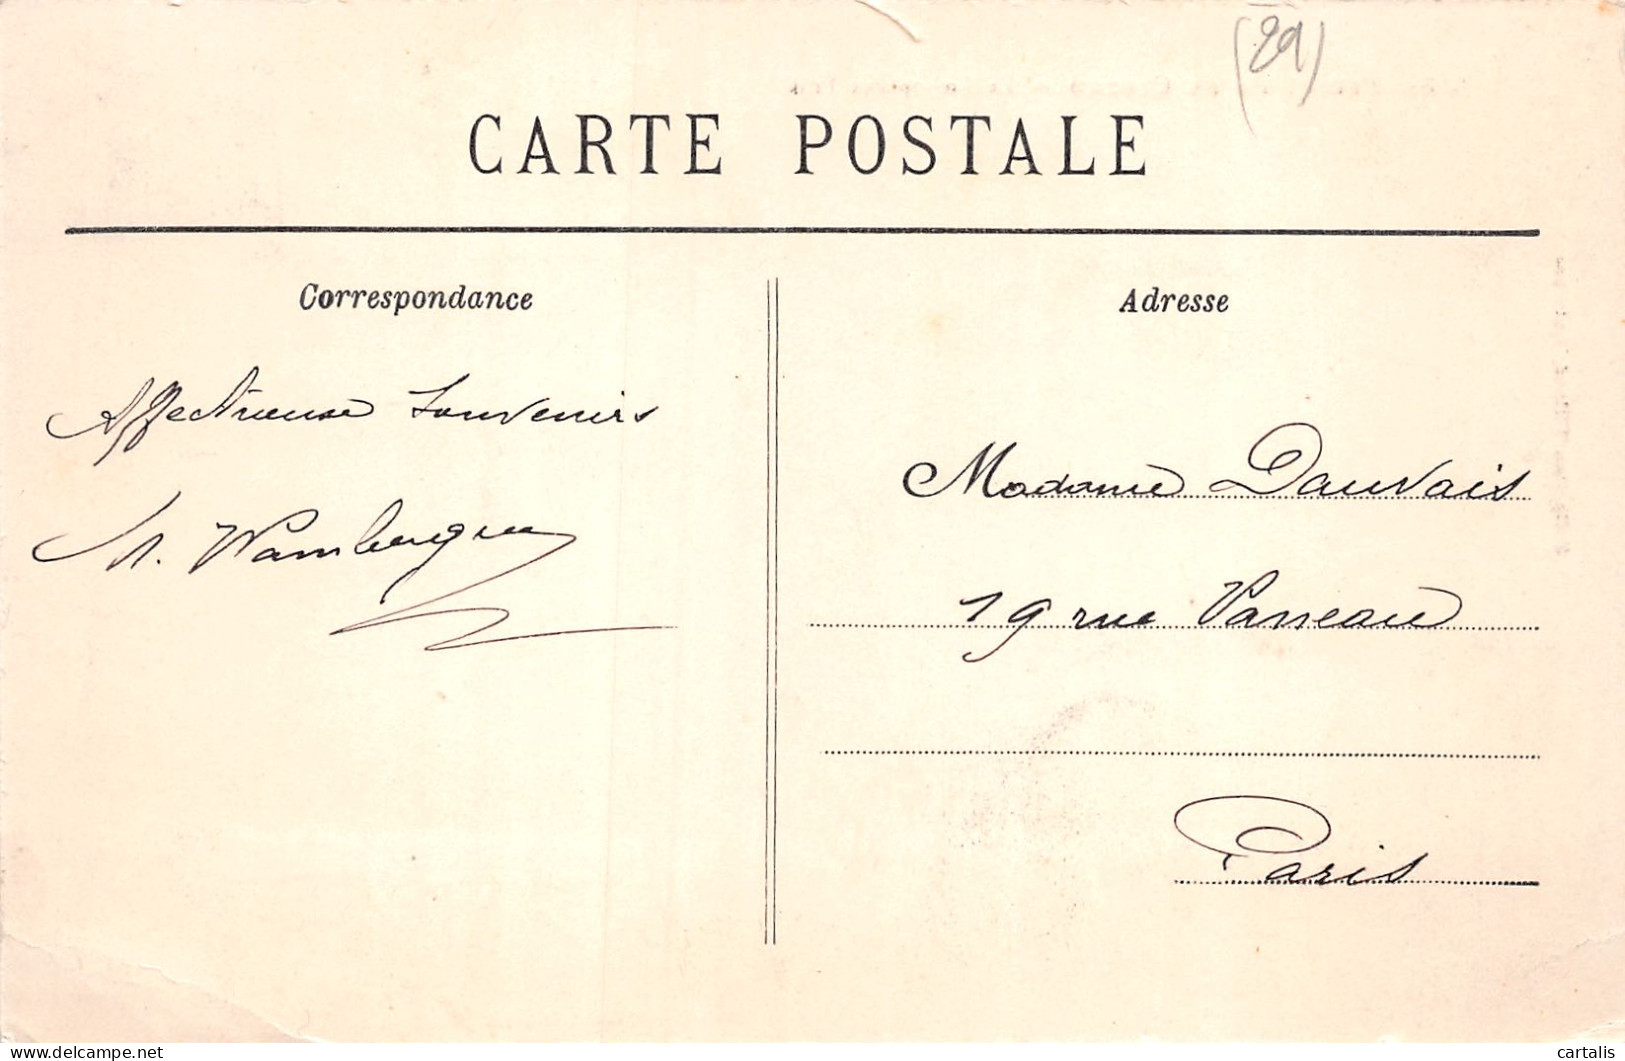 (29)
CARTE POSTALE
Correspondance
Adresse
Affectueuse Souvenirs
Madame Dauvais
19 rue Vaneau
Paris
delcampe.net
cartalis